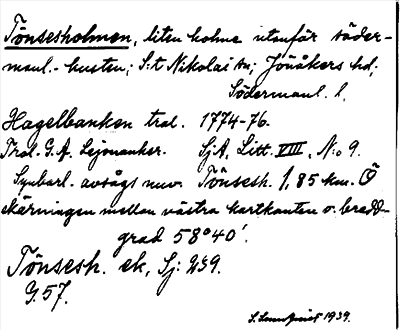 Tönsesholmen, liten holme utanför söder-
manl.-kusten; S:t Nikolai sn; Jönåkers hd;
Södermanl. l.
Hagelbanken tral. 1774-76.
Tral. G. A. Lejonanker. SjA, Litt. VIII, N:o 9.
Synbarl. avsågs nuv. Tönsesh. 1,85 km. Ö
skärningen mellan västra kartkanten o. bredd-
grad 58°40'.
Tönsesh. ek, Sj: 239.
G. 57.
1939.